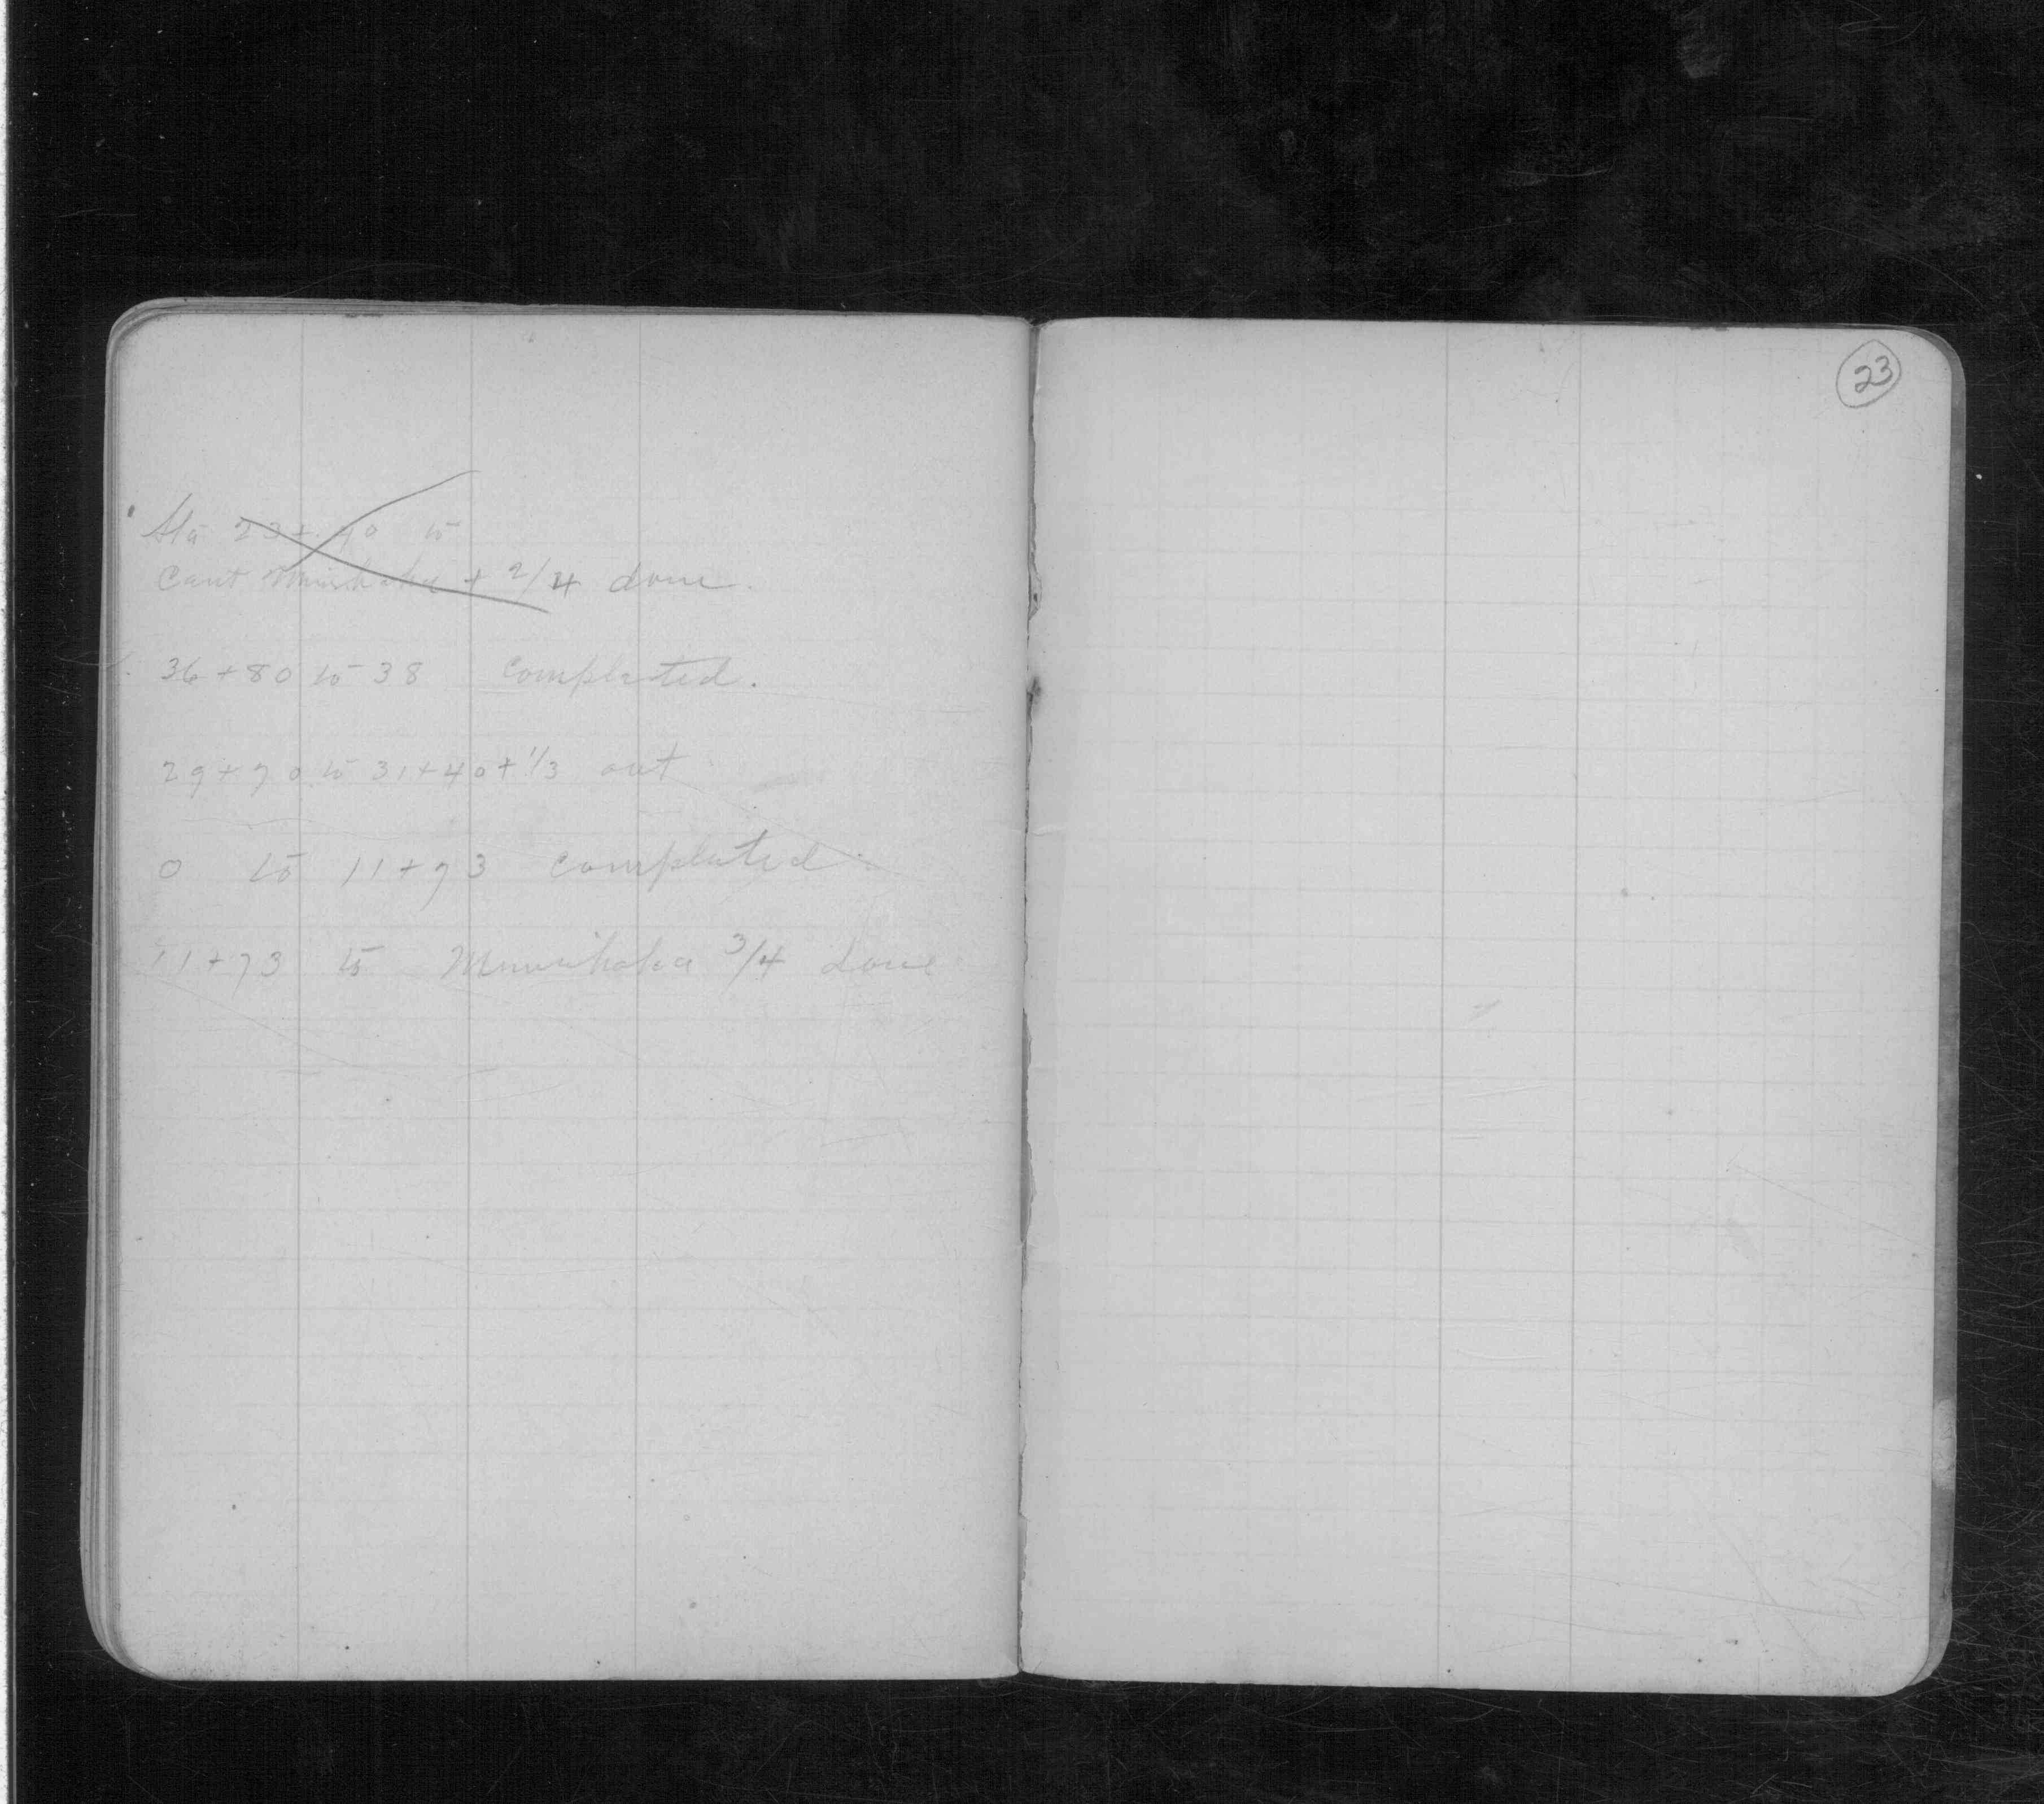 Sta 23+90 to
Cant Minihaha + 2/4 done.
36+80 to 38 completed.
29+70 to 31+40 + 1/3 out
0 to 11+73 completed
11+73 to 3/4 done
23